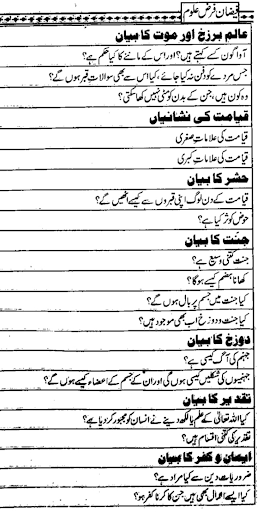 فیضان فرض علوم
عالم برزخ اور موت کا بیان
آواگون کسے کہتے ہیں؟ اور اس کے ماننے کا کیا حکم ہے؟
جس مردے کو دفن نہ کیا جائے، کیا اس سے بھی سوالات قبر ہوں گے؟
وہ کون ہیں، جن کے بدن کو مٹی نہیں کھا سکتی؟
قیامت کی نشانیاں
قیامت کی علامات صغری
قیامت کی علامات کبری
حشر کا بیان
قیامت کے دن لوگ اپنی قبروں سے کیسے اٹھیں گے؟
حوض کوثر کیا ہے؟
جنت کا بیان
جنت کتنی وسیع ہے؟
کھانا ہضم کیسے ہوگا؟
کیا جنت میں جسم پر بال ہوں گے؟
کیا جنت و دوزخ اب بھی موجود ہیں؟
دوزخ کا بیان
جہنم کی آگ کیسی ہے؟
جہنمیوں کی شکلیں کیسی ہوں گی اور ان کے جسم کے اعضاء کیسے ہوں گے؟
تقدیر کا بیان
کیا اللہ تعالیٰ کے علم یا لکھ دینے نے انسان کو مجبور کر دیا ہے؟
تقدیر کی کتنی اقسام ہیں؟
ایمان و کفر کا بیان
ضروریات دین سے کیا مراد ہے؟
کیا ایسے اعمال بھی ہیں جن کا کرنا کفر ہو؟